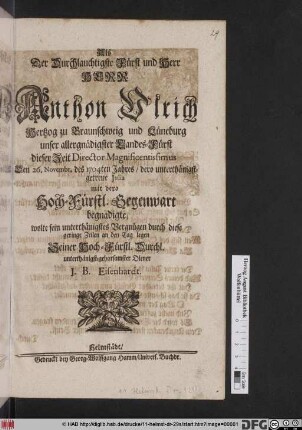 Als
Der Durchlauchtigste Fürst und Herr
HERR
Anthon Vlrich
Hertzog zu Braunschweig und Lüneburg
unser allergnädigster Landes-Fürst
dieser Zeit Director Magnificentissimus
Den 26. Novembr. des 1704ten Jahres / dero unterthänigst-
getreue Julia
mit dero
Hoch-Fürstl. Gegenwart
begnadigte,
wolte sein unterthänigstes Vergnügen durch diese
geringe Zeilen an den Tag legen
Seiner Hoch-Fürstl. Durchl.
unterthänigst-gehorsamster Diener
J. B. Eisenhardt.
Helmstädt /
Gedruckt bey Georg-Wolffgang Hamm / Univers. Buchdr.
Herzog August
Bibliothek
Wolfenbüttel
© HAB http://diglib.hab.de/drucke/11-helmst-dr-29s/start.htm?image=00001
DFG